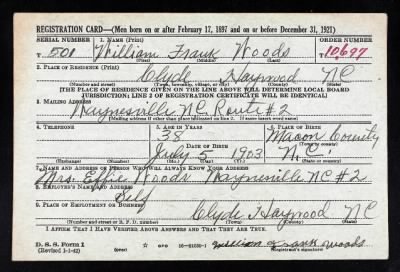 REGISTRATION CARD—(Men born on or after February 17, 1897 and on or before December 31, 1921)
SERIAL NUMBER 1. NAME (Print) ORDER NUMBER
501 William Frank Woods 10,697
(First) (Middle) (Last)
2. PLACE OF RESIDENCE (Print)
Clyde Haywood NC
(Number and street) (Town, township, village, or city) (County) (State)
[THE PLACE OF RESIDENCE GIVEN ON THE LINE ABOVE WILL DETERMINE LOCAL BOARD
JURISDICTION; LINE 2 OF REGISTRATION CERTIFICATE WILL BE IDENTICAL]
3. MAILING ADDRESS
Waynesville NC. Route #2
[Mailing address if other than place indicated on line 2. If same insert word same]
4. TELEPHONE 5. AGE IN YEARS 6. PLACE OF BIRTH
38 Macon County
DATE OF BIRTH (Town or county)
July 5 1903 N.C.
(Exchange) (Number) (Mo.) (Day) (Yr.) (State or country)
7. NAME AND ADDRESS OF PERSON WHO WILL ALWAYS KNOW YOUR ADDRESS
Mrs. Effie Woods Waynesville NC #2
8. EMPLOYER'S NAME AND ADDRESS
Self
9. PLACE OF EMPLOYMENT OR BUSINESS
Clyde Haywood NC
(Number and street or R. F. D. number) (Town) (County) (State)
I AFFIRM THAT I HAVE VERIFIED ABOVE ANSWERS AND THAT THEY ARE TRUE.
D. S. S. Form 1
(Revised 1-1-42) GPO 16-21630-1 William Frank Woods
(Registrant's signature)